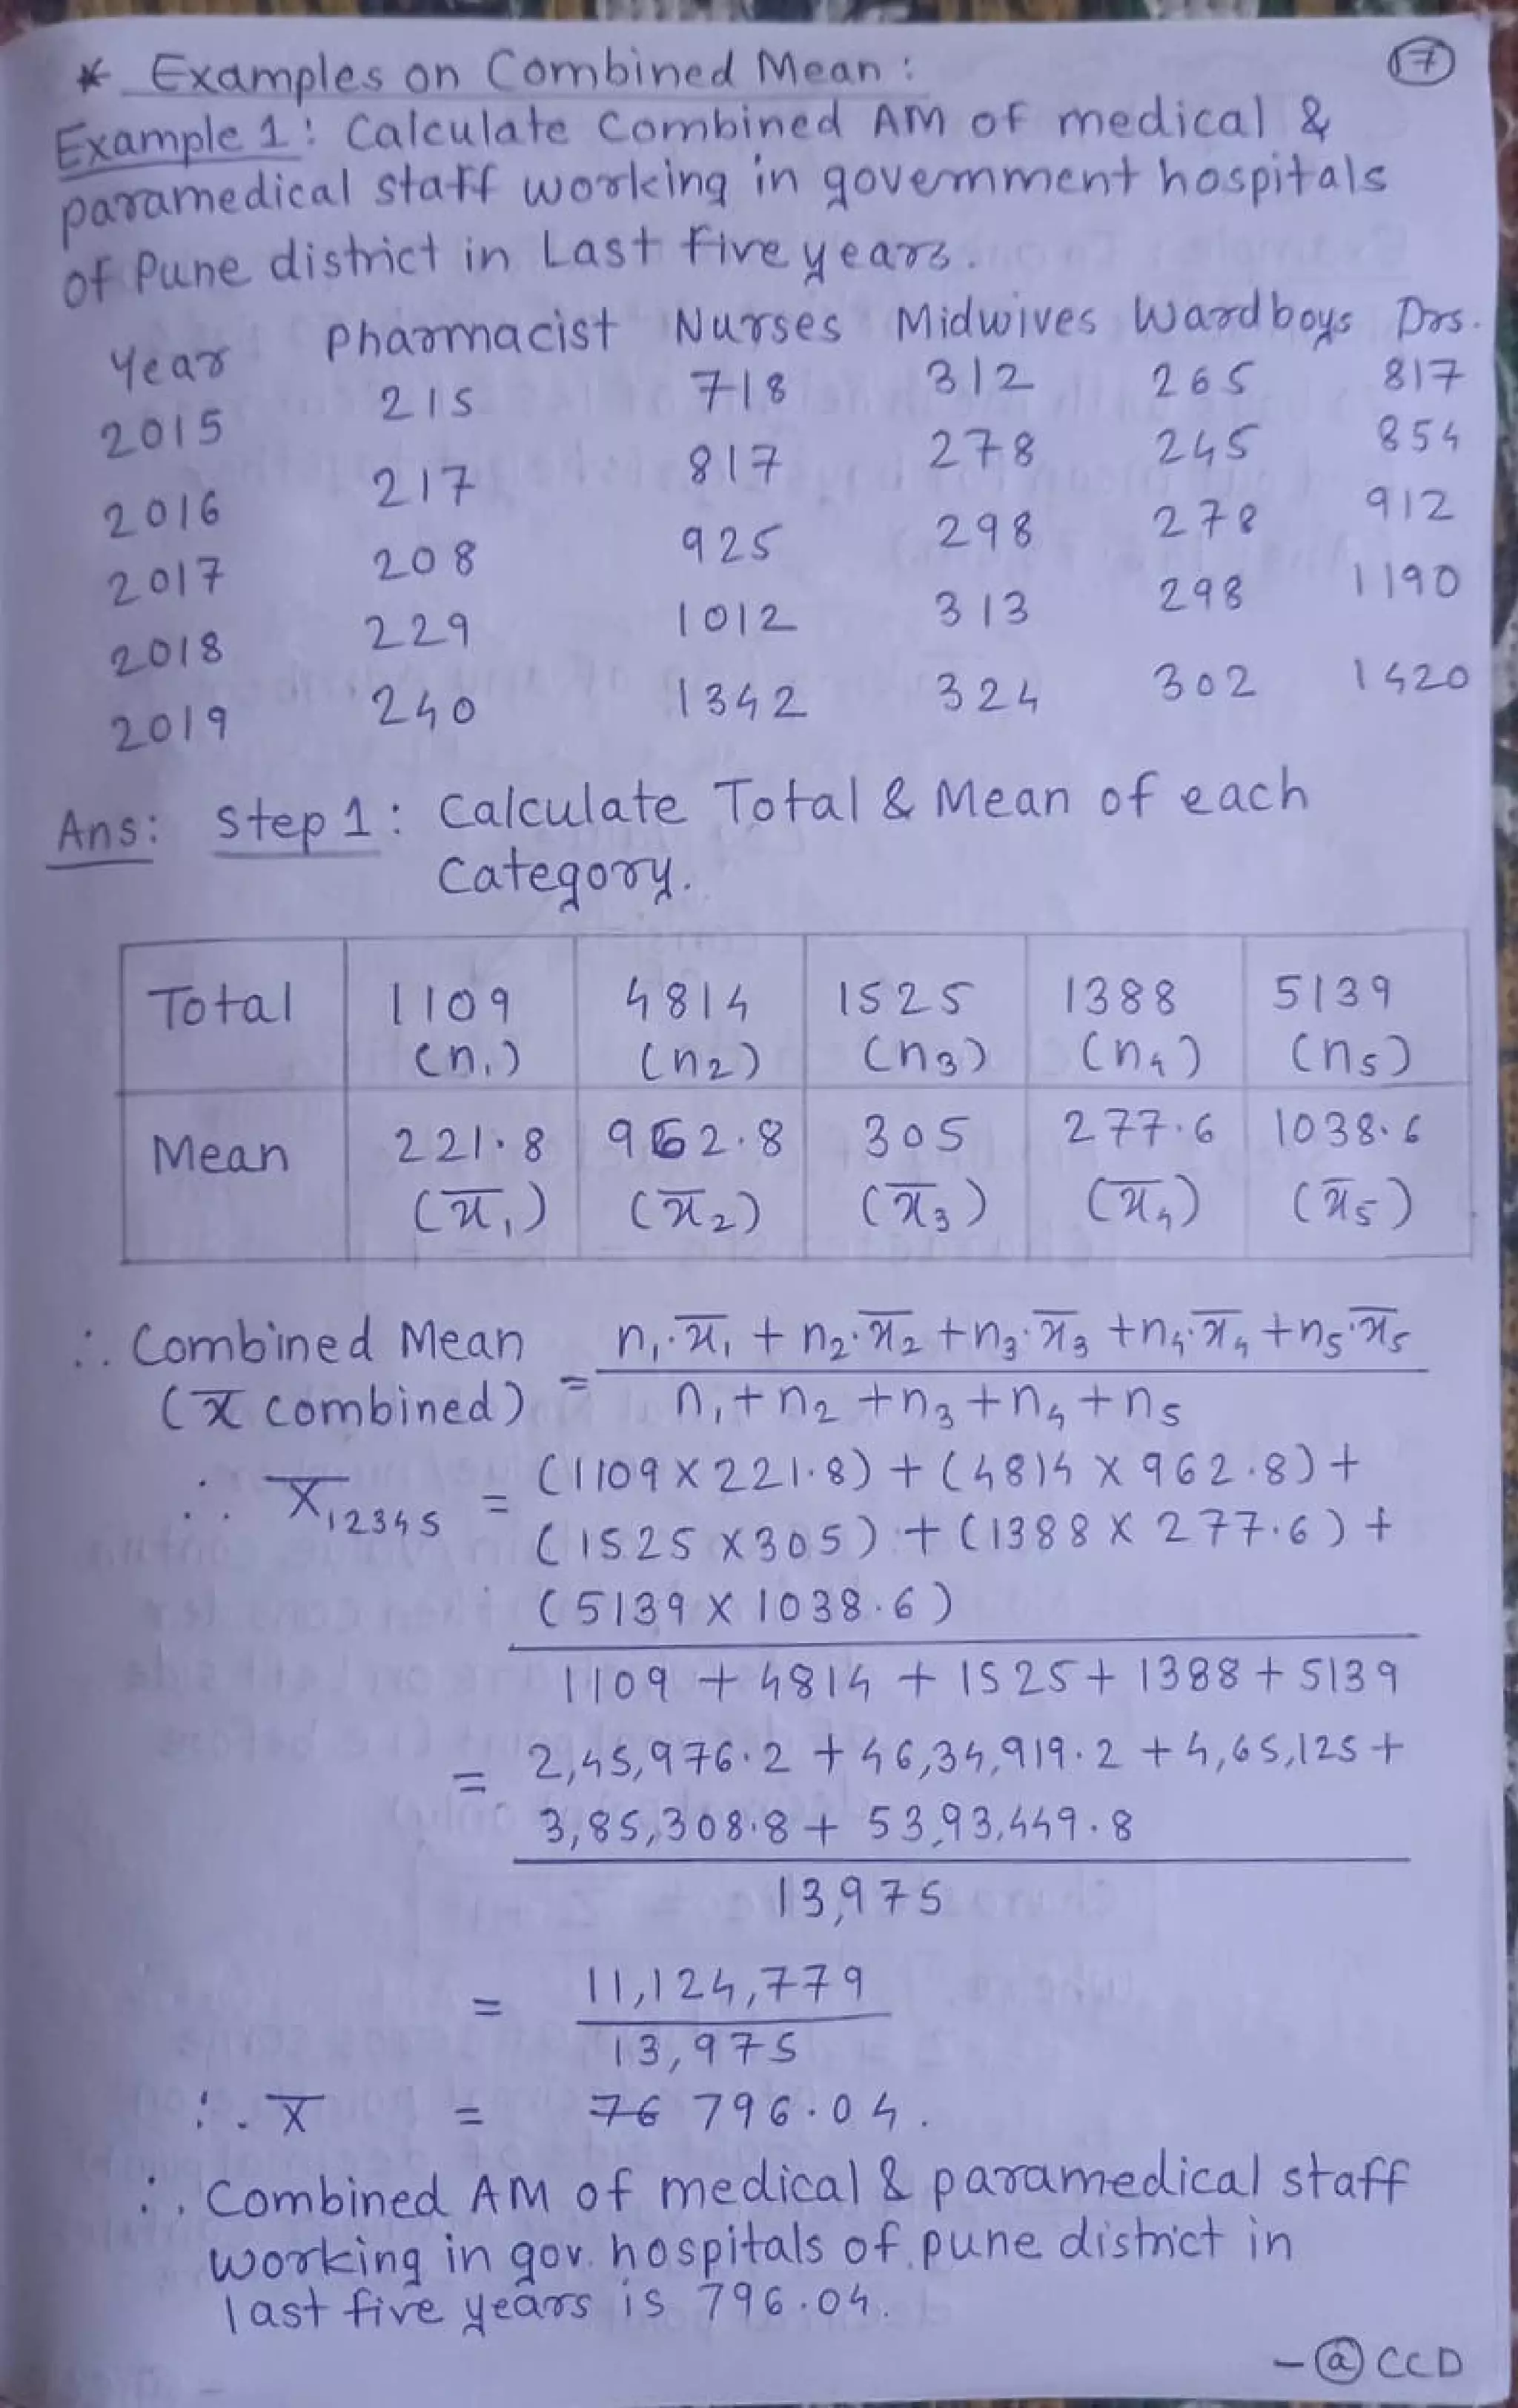 * Examples on Combined Mean : 17
Example 1 : Calculate Combined AM of medical &
paramedical staff working in government hospitals
of Pune district in Last five years.
Year Pharmacist Nurses Midwives Wardboys Drs.
2015 215 718 312 265 817
2016 217 817 278 245 854
2017 208 925 298 278 912
2018 229 1012 313 298 1190
2019 240 1342 324 302 1420
Ans: Step 1 : Calculate Total & Mean of each
Category.
Total 1109 4814 1525 1388 5139
(n₁) (n₂) (n₃) (n₄) (n₅)
Mean 221.8 962.8 305 277.6 1038.6
(x̄₁) (x̄₂) (x̄₃) (x̄₄) (x̄₅)
∴ Combined Mean = n₁.x̄₁ + n₂.x̄₂ + n₃.x̄₃ + n₄.x̄₄ + n₅.x̄₅
(x̄ combined) n₁ + n₂ + n₃ + n₄ + n₅
∴ X̄₁₂₃₄₅ = (1109 x 221.8) + (4814 x 962.8) +
(1525 x 305) + (1388 x 277.6) +
(5139 x 1038.6)
1109 + 4814 + 1525 + 1388 + 5139
= 2,45,976.2 + 46,34,919.2 + 4,65,125 +
3,85,308.8 + 53,93,449.8
13,975
= 11,124,779
13,975
∴ X̄ = 76 796.04.
∴ Combined AM of medical & paramedical staff
working in gov. hospitals of pune district in
last five years is 796.04.
- @ CCD